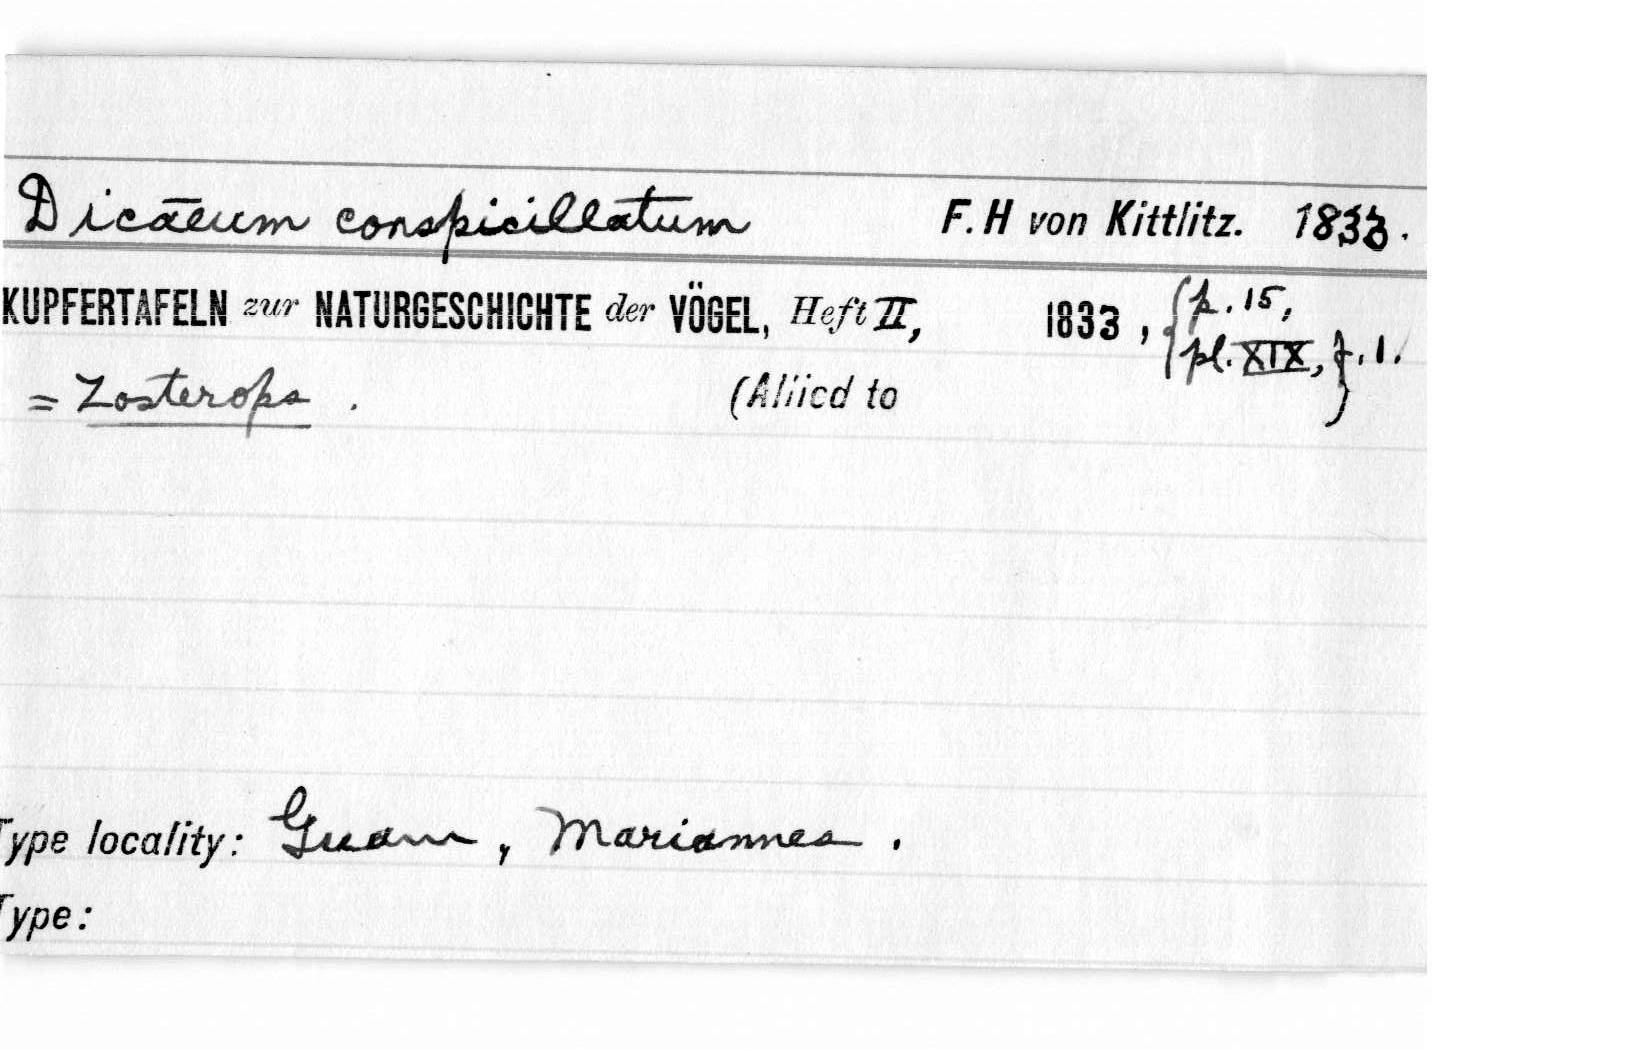 Dicāeum conspicillatum F. H von Kittlitz. 1833.
KUPFERTAFELN zur NATURGESCHICHTE der VÖGEL, Heft II, 1833, {p. 15,
pl. XIX, f. 1.
= Zosterops. (Allied to )
Type locality: Guam, Mariannes.
Type: